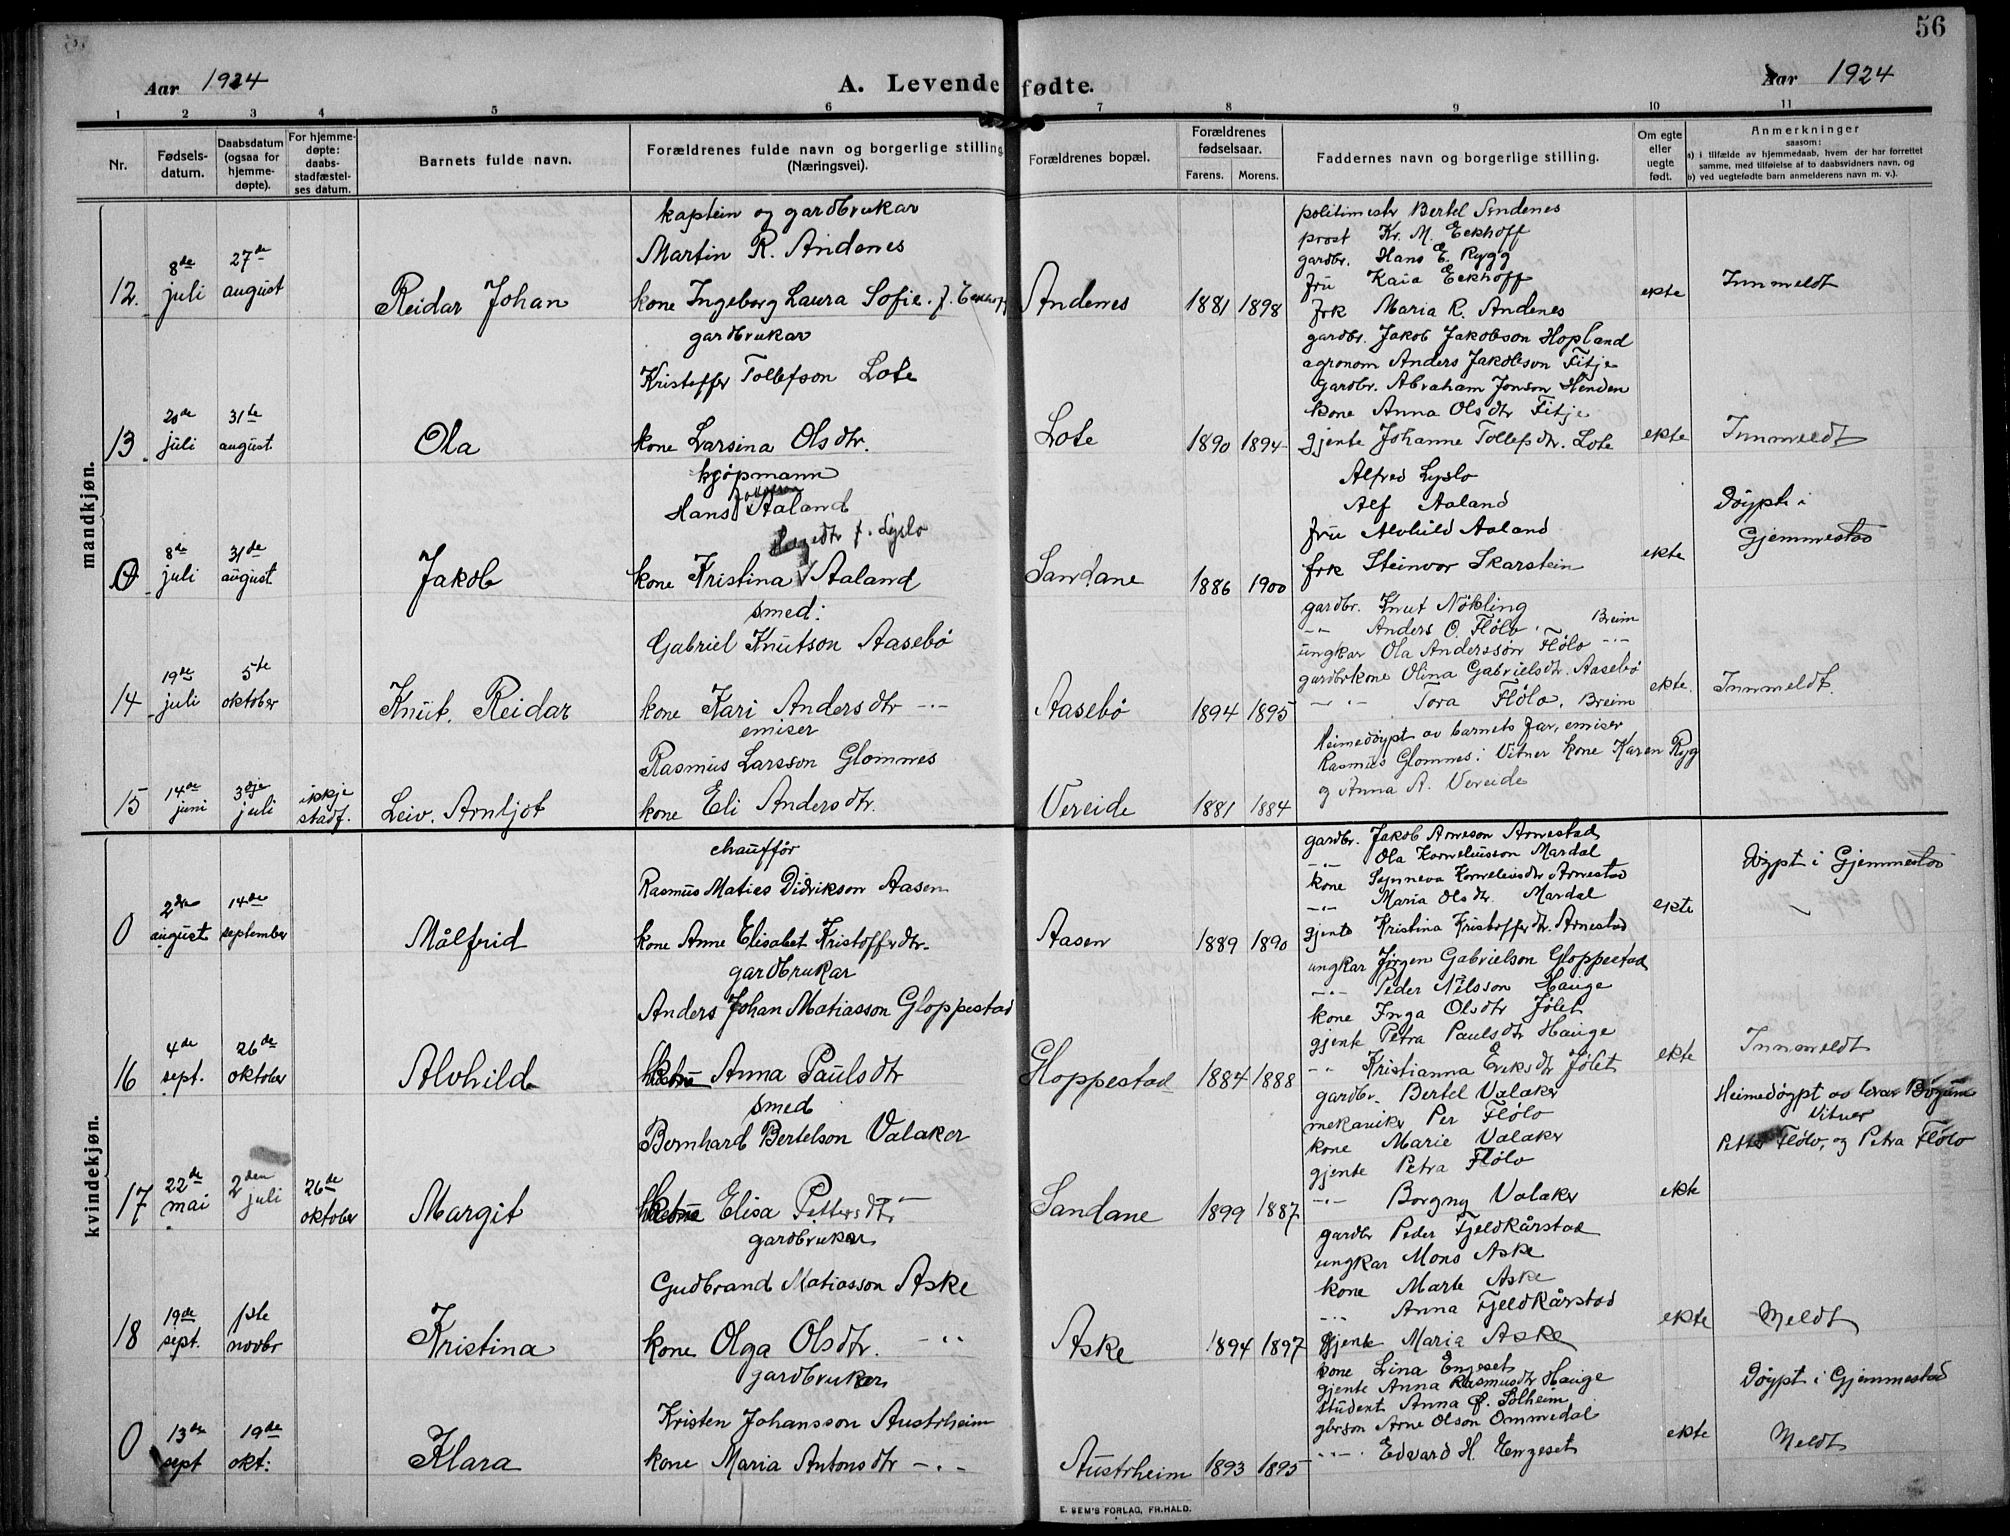 56
Aar 1924
A. Levende fødte.
Aar 1924
1 2 3 4 5 6 7 8 9 10 11
Nr.
Fødsels-
datum.
Daabsdatum
(ogsaa for
hjemme-
døpte).
For hjemme-
døpte:
daabs-
stadfæstel-
ses datum.
Barnets fulde navn.
Forældrenes fulde navn og borgerlige stilling
(Næringsvei).
Forældrenes bopæl.
Forældrenes
fødselsaar.
Farens. Morens.
Faddernes navn og borgerlige stilling.
Om egte
eller
uegte
født.
Anmerkninger
saasom:
a) i tilfælde av hjemmedaab, hvem der har forrettet
samme, med tilføielse af to daabsvidners navn, og
b) ved uegtefødte barn anmelderens navn m. v.).
mandkjøn.
12.
8de
juli
27de
august
Reidar Johan
kaptein og gardbrukar
Martin R. Andenes
kone Ingeborg Laura Sofie f. Eckhoff
Andenes
1881 1898
politimestr Bertel Andenes
prost Kr. M. Eckhoff
gardbr. Hans E. Rygg
fru Kaia Eckhoff
frk Maria R. Andenes
ekte
Innmeldt
13.
20de
juli
31te
august
Ola
gardbrukar
Kristoffer Tollefson Lote
kone Larsina Olsdtr.
Lote
1890 1894
gardbr. Jakob Jakobson Hopland
agronom Anders Jakobson Fitje
gardbr. Abraham Jonson Henden
kone Anna Olsdtr Fitje
gjente Johanne Tollefsdtr. Lote
ekte
Innmeldt
0
8de
juli
31de
august
Jakob
kjøpmann
Hans Aaland
f. Lyslo
kone Kristina Aaland
Sandane
1886 1900
Alfred Lyslo
Alf Aaland
fru Alvhild Aaland
frk Steinvor Skarstein
ekte
Døypt i
Gjemmestad
14
19de
juli
5te
oktober
Knut. Reidar
smed:
Gabriel Knutson Aasebö
kone Kari Andersdtr -"-
Aasebö
1894 1895
gardbr. Knut Nökling
-"- Anders O. Flölo, Breim
ungkar Ola Andersson Flölo -"-
gardbrkone Olina Gabrielsdtr. Aasebö
-"- Tora Flölo, Breim
ekte.
Innmeldt.
15
14de
juni
3dje
juli
ikkje
stadf.
Leiv. Arnljot
emisær
Rasmus Larsson Glomnes
kone Eli Andersdtr.
Vereide
1881 1884
Heimedøypt av barnets far, emisær
Rasmus Glomnes. Vitner kone Karen Ryg
og Anna A. Vereide
kvindekjøn.
0
2dre
august
14de
september
Målfrid
chaufför
Rasmus Maties Didrikson Aasen
kone Anne Elisabet Kristofferdtr.
Aasen
1889 1890
gardbr. Jakob Arneson Arnestad
-"- Ola Korneliusson Mardal
kone Synneva Korneliusdtr Arnestad
-"- Maria Olsdtr. Mardal
gjente Kristina Kristofferdtr. Arnestad
ekte
Døypt i Gjemmestad
16
4de
sept.
26de
oktober
Alvhild
gardbrukar
Anders Johan Matiasson Gloppestad
Anna Paulsdtr
Gloppestad
1884 1888
ungkar Jörgen Gabrielson Gloppestad
-"- Peder Nilsson Hauge
kone Inga Olsdtr Jölet
gjente Petra Paulsdtr Hauge
-"- Kristianna Eriksdtr Jölet
ekte
Innmeldt
17
22de
mai
2den
juli
26de
oktober
Margit
smed
Bernhard Bertelson Valaker
Elisa Pettersdtr
Sandane
1899 1887
gardbr. Bertel Valaker
mekaniker Per Flölo
kone Marie Valaker
gjente Petra Flölo
-"- Borgny Valaker
ekte
Heimedøypt av
Vitner
Flölo, og Petra Flölo
18
19de
sept.
1ste
novbr
Kristina
gardbruker
Gudbrand Matiasson Aske
kone Olga Olsdtr. -"-
Aske
1894 1897
gardbr Peder Fjeldkårstad
ungkar Mons Aske
kone Marte Aske
-"- Anna Fjeldkårstad
gjente Maria Aske
ekte
Meldt
0
13de
sept
19de
okt:
Klara
gardbruker
Kristen Johansson Austrheim
kone Maria Antonsdtr -"-
Austrheim
1893 1895
kone Lina Engeset
gjente Anna Rasmusdtr Hauge
student Anna Ø. Solheim
Arne Olson Ommedal
-"- Edvard H. Engeset
ekte
Døypt i Gjemmestad
Meldt
E. SEM'S FORLAG, FR.HALD.